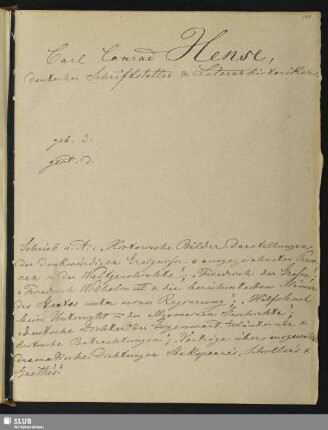 Carl Conrad Hense,
deutscher Schriftsteller & Literarhistoriker.
geb. d.
gest. d.
Schrieb u. A.: Historische Bilder Darstellungen
der denkwürdigen Ereignisse & ausgezeichneten Perso-
nen der Weltgeschichte; Friedrich der Große;
Friedrich Wilhelm III & die berühmtesten Männer
des Staates unter seiner Regierung; Hülfsbuch
beim Unterricht in der allgemeinen Geschichte;
deutsche Dichter der Gegenwart. Erläuternde &
kritische Betrachtungen; Vorträge über ausgewählte
dramatische Dichtungen Shakspeare's, Schiller's &
Goethe's.
SLUB